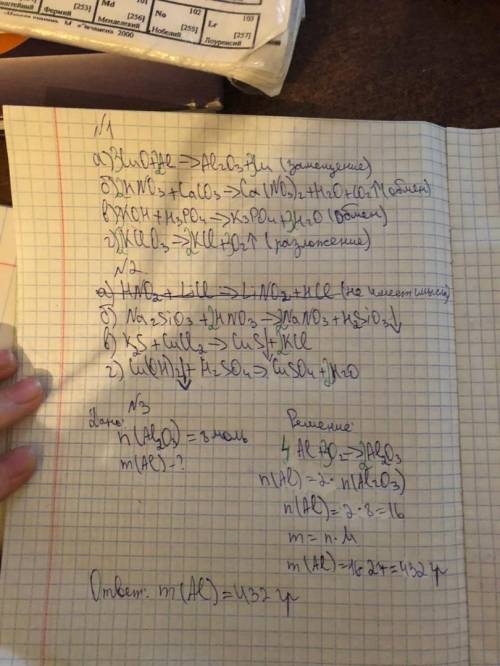 Фермий [253] Md [256] Менделевий No 102 [255] Нобелий Lr 103 [257] Лоуренсий
2000
№1
а) 3CuO+2Al→Al₂O₃+3Cu (замещение)
б) 2HNO₃+CaCO₃→Ca(NO₃)₂+H₂O+CO₂↑ (обмен)
в) 3KOH+H₃PO₄→K₃PO₄+3H₂O (обмен)
г) 2KClO₃→2KCl+3O₂↑ (разложение)
№2
а) HNO₂+LiCl→LiNO₂+HCl (не имеет смысла)
б) Na₂SiO₃+2HNO₃→2NaNO₃+H₂SiO₃↓
в) K₂S+CuCl₂→CuS↓+2KCl
г) Cu(OH)₂↓+H₂SO₄→CuSO₄+2H₂O
№3
Дано:
n(Al₂O₃)=8моль
m(Al)-?
Решение:
4Al+3O₂→2Al₂O₃
n(Al)=2·n(Al₂O₃)
n(Al)=2·8=16
m=n·M
m(Al)=16·27=432 гр
Ответ: m(Al)=432 гр